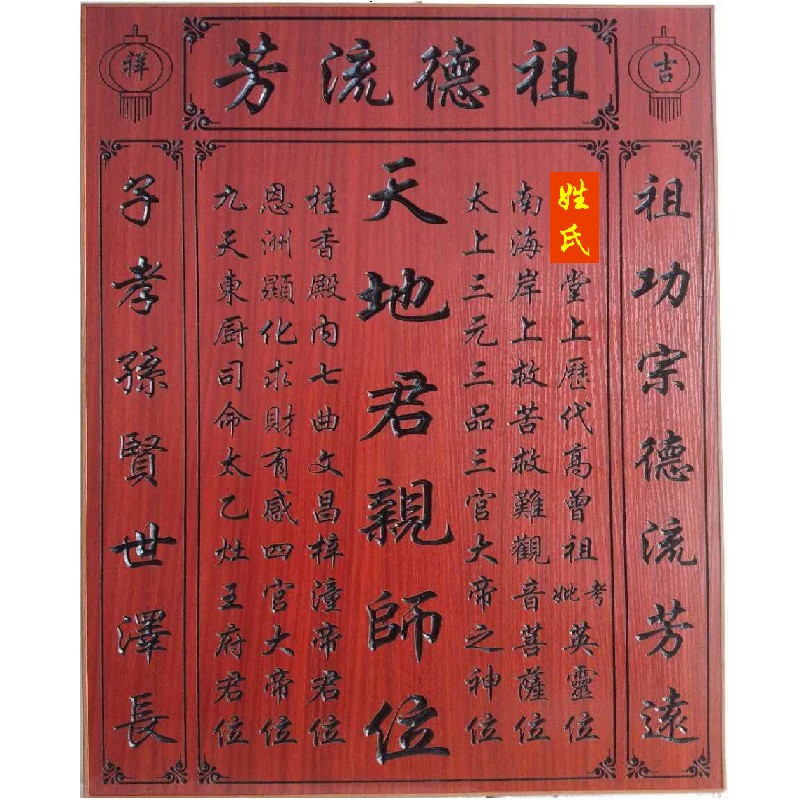 吉
祥
祖德流芳
祖功宗德流芳遠
姓氏
堂上歷代高曾祖考妣英靈位
南海岸上救苦救難觀音菩薩位
太上三元三品三官大帝之神位
天地君親師位
桂香殿內七曲文昌梓潼帝君位
恩洲顯化求財有感四官大帝位
九天東厨司命太乙灶王府君位
子孝孫賢世澤長